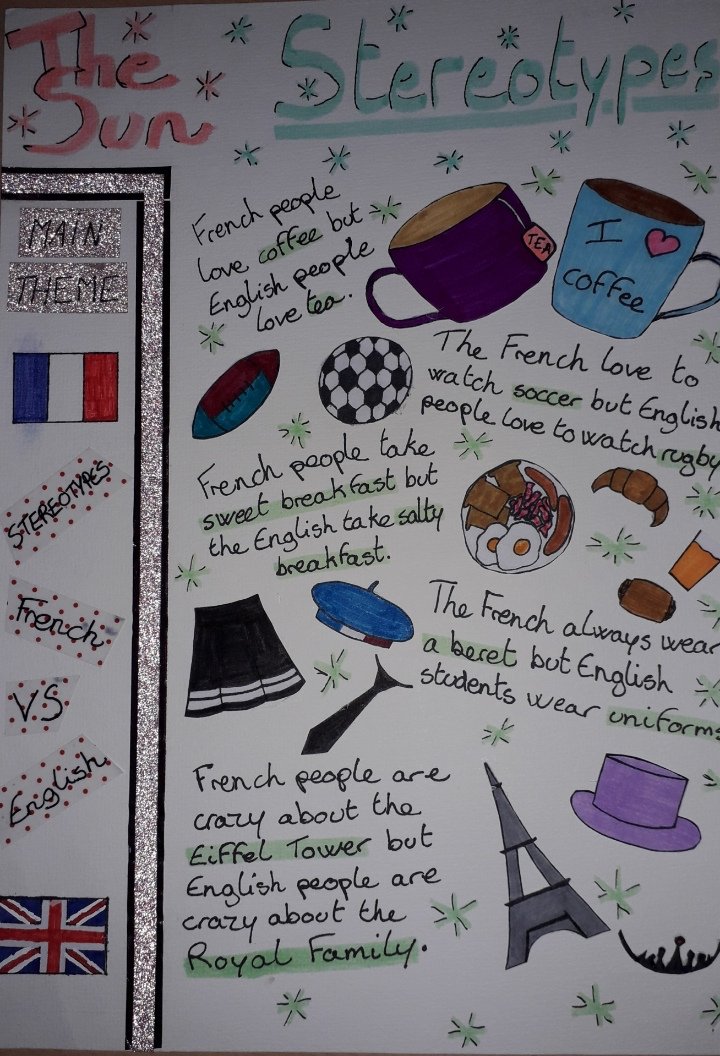 The
Sun
Stereotypes
MAIN
THEME
STEREOTYPES
French
VS
English
French people
love coffee but
English people
love tea.
TEA
I
coffee
The French love to
watch soccer but English
people love to watch rugby
French people take
sweet breakfast but
the English take salty
breakfast.
The French always wear
a beret but English
students wear uniforms
French people are
crazy about the
Eiffel Tower but
English people are
crazy about the
Royal Family.